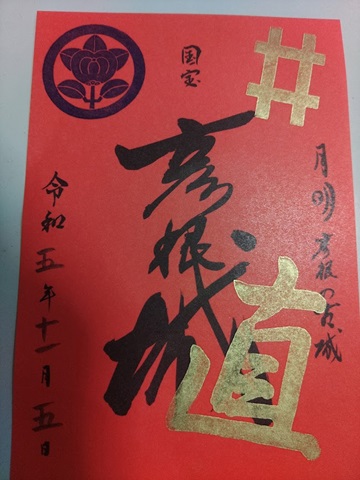 井
直
月明彦根の古城
国宝
彦根城
令和五年十一月五日